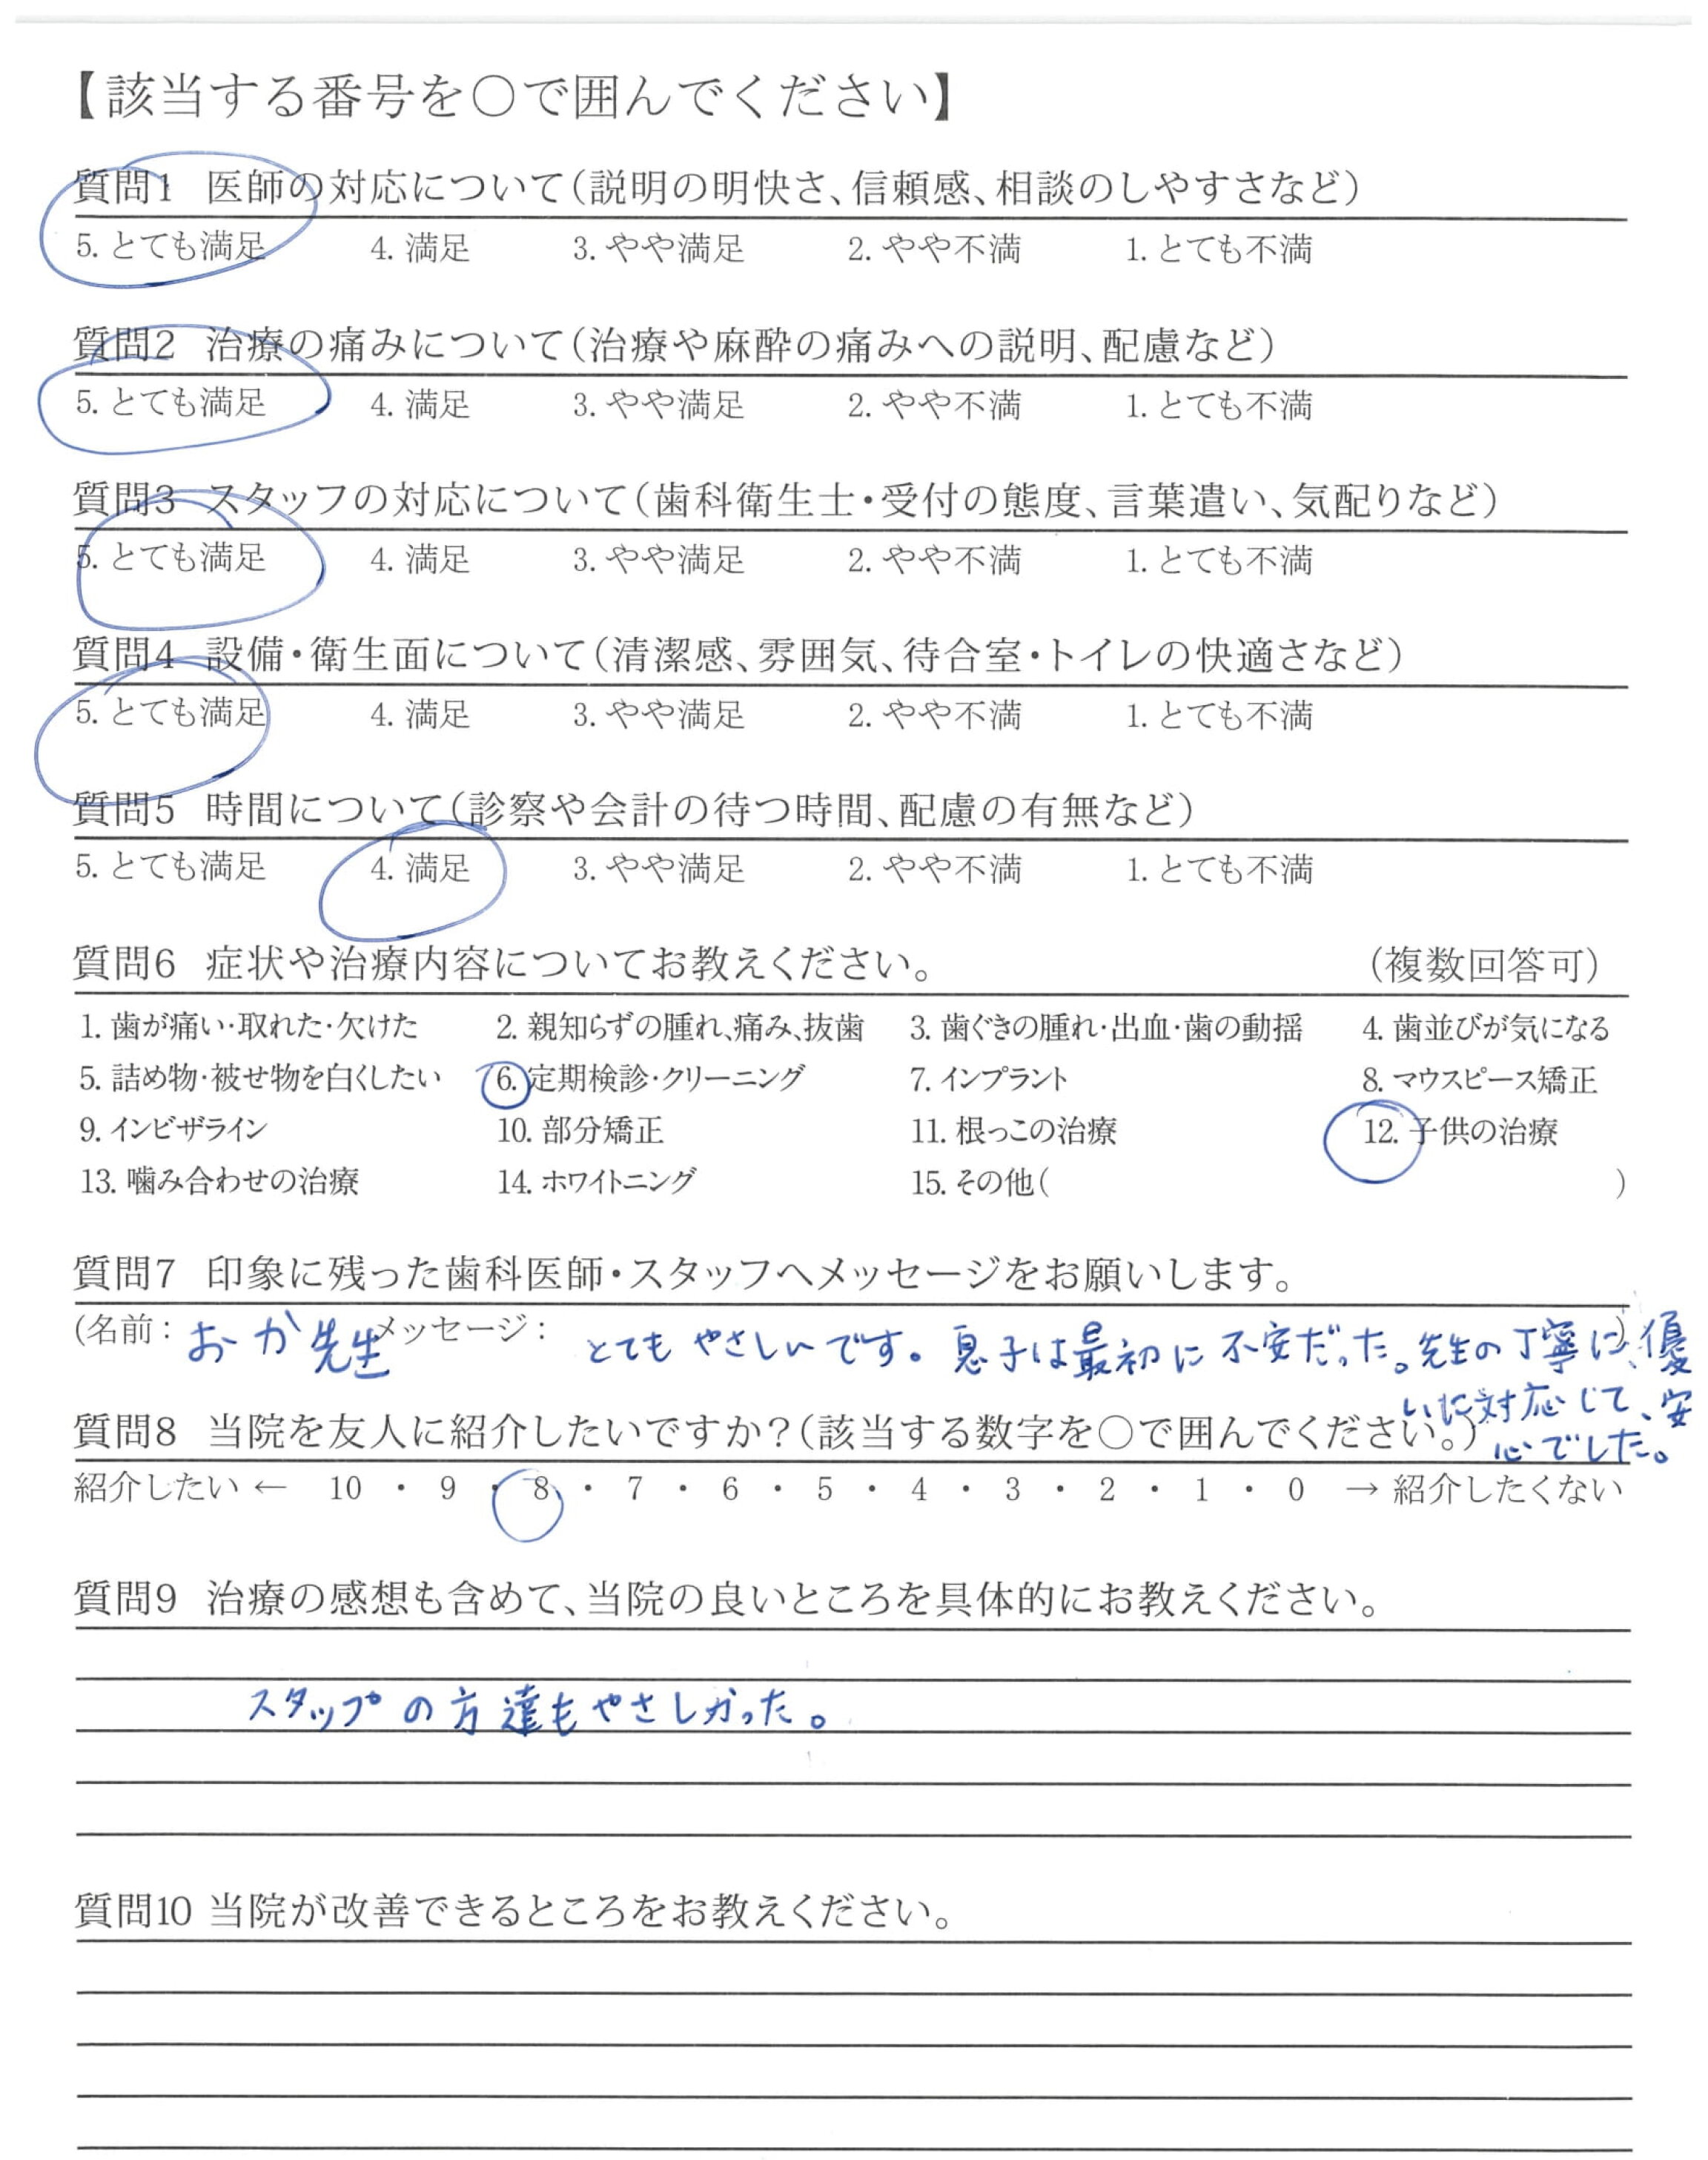 【該当する番号を〇で囲んでください】
質問1 医師の対応について(説明の明快さ、信頼感、相談のしやすさなど)
5. とても満足 4. 満足 3. やや満足 2. やや不満 1. とても不満
質問2 治療の痛みについて(治療や麻酔の痛みへの説明、配慮など)
5. とても満足 4. 満足 3. やや満足 2. やや不満 1. とても不満
質問3 スタッフの対応について(歯科衛生士・受付の態度、言葉遣い、気配りなど)
5. とても満足 4. 満足 3. やや満足 2. やや不満 1. とても不満
質問4 設備・衛生面について(清潔感、雰囲気、待合室・トイレの快適さなど)
5. とても満足 4. 満足 3. やや満足 2. やや不満 1. とても不満
質問5 時間について(診察や会計の待つ時間、配慮の有無など)
5. とても満足 4. 満足 3. やや満足 2. やや不満 1. とても不満
質問6 症状や治療内容についてお教えください。 (複数回答可)
1. 歯が痛い・取れた・欠けた 2. 親知らずの腫れ、痛み、抜歯 3. 歯ぐきの腫れ・出血・歯の動揺 4. 歯並びが気になる
5. 詰め物・被せ物を白くしたい 6. 定期検診・クリーニング 7. インプラント 8. マウスピース矯正
9. インビザライン 10. 部分矯正 11. 根っこの治療 12. 子供の治療
13. 噛み合わせの治療 14. ホワイトニング 15. その他( )
質問7 印象に残った歯科医師・スタッフへメッセージをお願いします。
(名前: おか先生 メッセージ: とてもやさしいです。息子は最初に不安だった。先生の丁寧に、優)
いに対応じて、安
心でした。
質問8 当院を友人に紹介したいですか?(該当する数字を〇で囲んでください。)
紹介したい ← 10 ・ 9 ・ 8 ・ 7 ・ 6 ・ 5 ・ 4 ・ 3 ・ 2 ・ 1 ・ 0 → 紹介したくない
質問9 治療の感想も含めて、当院の良いところを具体的にお教えください。
スタップの方達もやさしかった。
質問10 当院が改善できるところをお教えください。